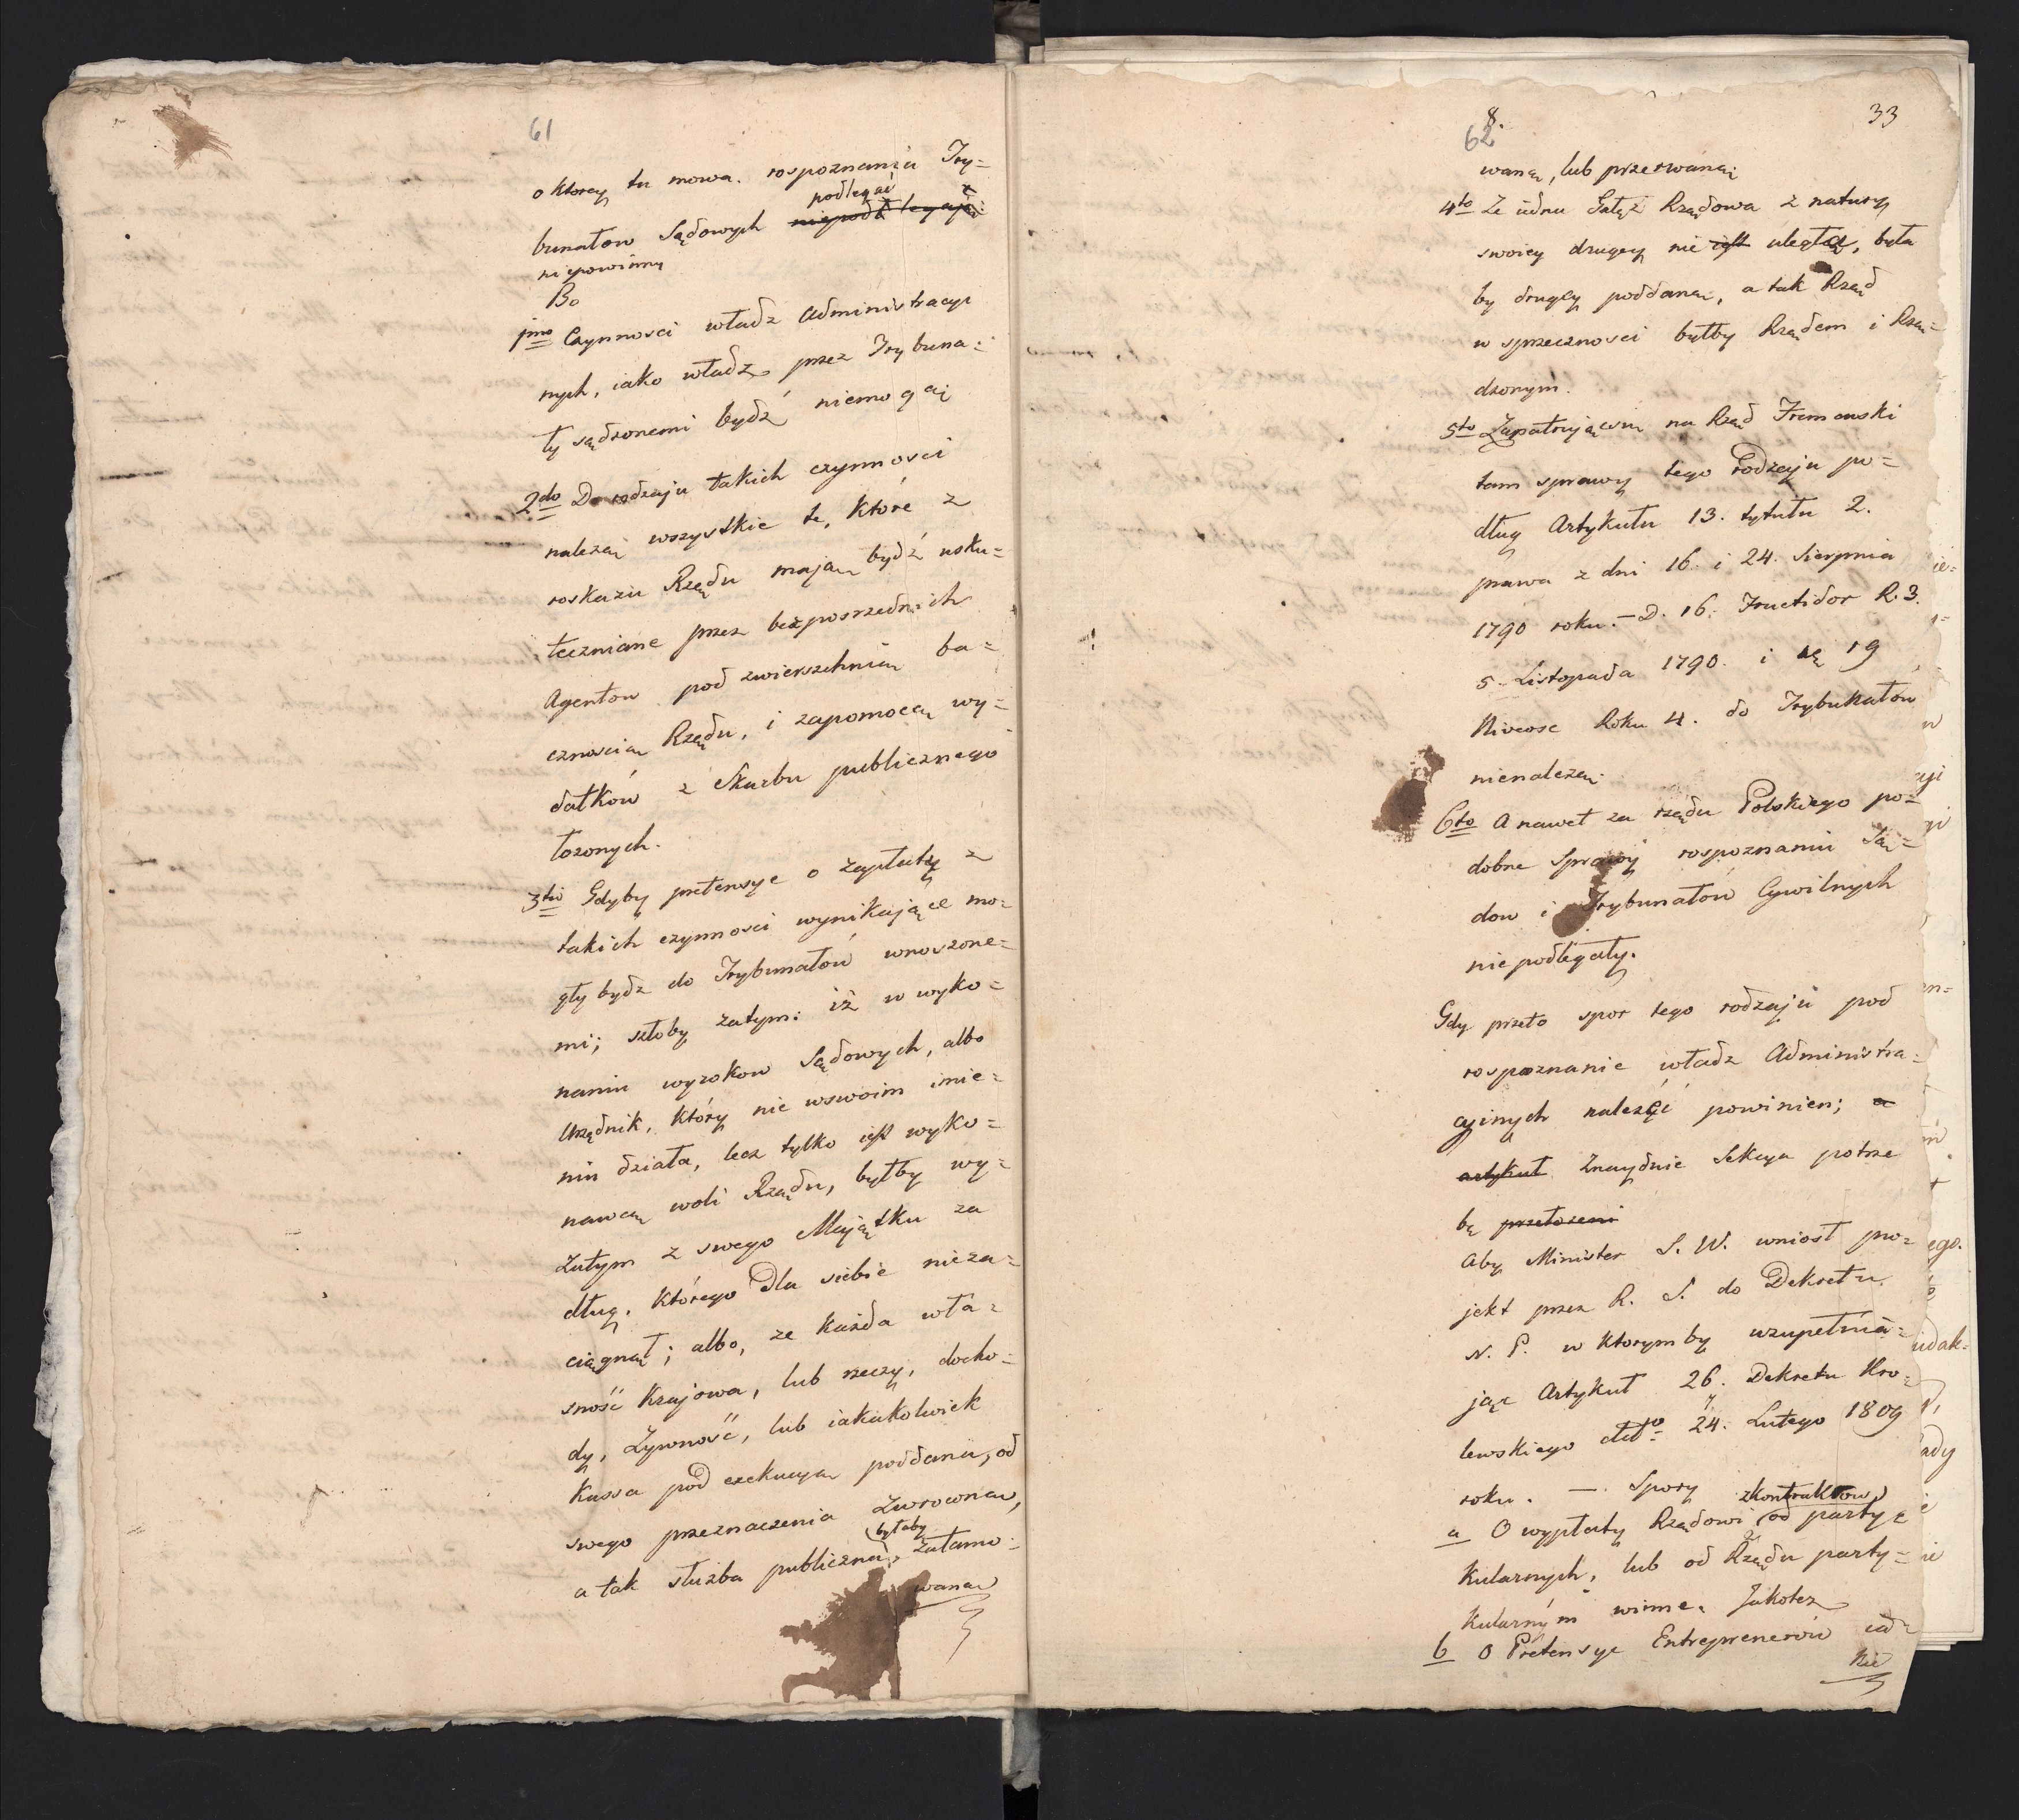 61
o ktorey tu mowa. rospoznaniu Try=
podlegać
bunałow Sądowych niepodlegają:
niepowinny
Bo
jmo Czynnosci władz Administracyi
nych, iako władz, przez Trybuna=
ły sądzonemi bydź niemogą
2do Do rodzaju takich czynnosci
należą wszystkie te, które z
roskazu Rządu mają bydź usku=
teczniane przez bezposrzednich
Agentow pod zwierzchnią ba=
cznoscią Rządu, i zapomocą wy=
datków z Skarbu publicznego
łożonych.
3tio Gdyby pretensye o zapłatę z
takich czynnosci wynikające mo=
gły bydz do Trybunałów wnoszone=
mi; szłoby zatym: iż w wyko=
naniu wyrokow Sądowych, albo
Urzędnik, który nie wswoim imie=
niu działa, lecz tylko iest wyko=
nawcą woli Rządu, byłby wy=
zutym z swego Majątku za
dług, którego dla siebie nieza=
ciągnął; albo, ze każda wła=
sność Krajowa, lub rzeczy, docho=
dy, Żywność, lub iakakolwiek
Kassa pod exekucyą poddana, od
swego przeznaczenia zwrocona,
byłaby
a tak służba publiczna, zatamo=
wana
8.
62
33
wana, lub przerwana;
4to Ze iedna Gałęź Rządowa z natury
swoiey drugiey nie iest uległą, była
by drugiey poddana, a tak Rząd
w sprzeczności byłby Rządem i Rzą=
dzonym.
5to Zapatrującsię na Rząd Francuski
tam sprawy tego rodzaju po=
dług Artykułu 13. tytułu 2.
prawa z dni 16. i 24. Sierpnia
1790 roku. – D. 16. Fructidor R. 3.
5. Listopada 1790. i 19
Nivose Roku 4. do Trybunałów
nienależą.
6to A nawet za rządu Polskiego po=
dobne Sprawy rospoznaniu Są=
dow i Trybunałów Cywilnych
niepodlegały.
Gdy przeto spor tego rodzaju pod
rospoznanie władz Administra=
cyinych należeć powinien; a
artykuł Znayduie Sekcya potrze
bę przełożeni
Aby Minister S. W. wniosł pro=
jekt przez R. S. do Dekretu
N. P. w ktorymby uzupełnia=
jąc Artykuł 26. Dekretu Kro=
lewskiego dto 24. Lutego 1809
roku. – Spory zkontraktow
a O wypłaty Rządowi od party=
kularnych, lub od Rządu party=
kularnym winne. Jakotez
b O Pretensye Entreprenerów iad=
nie